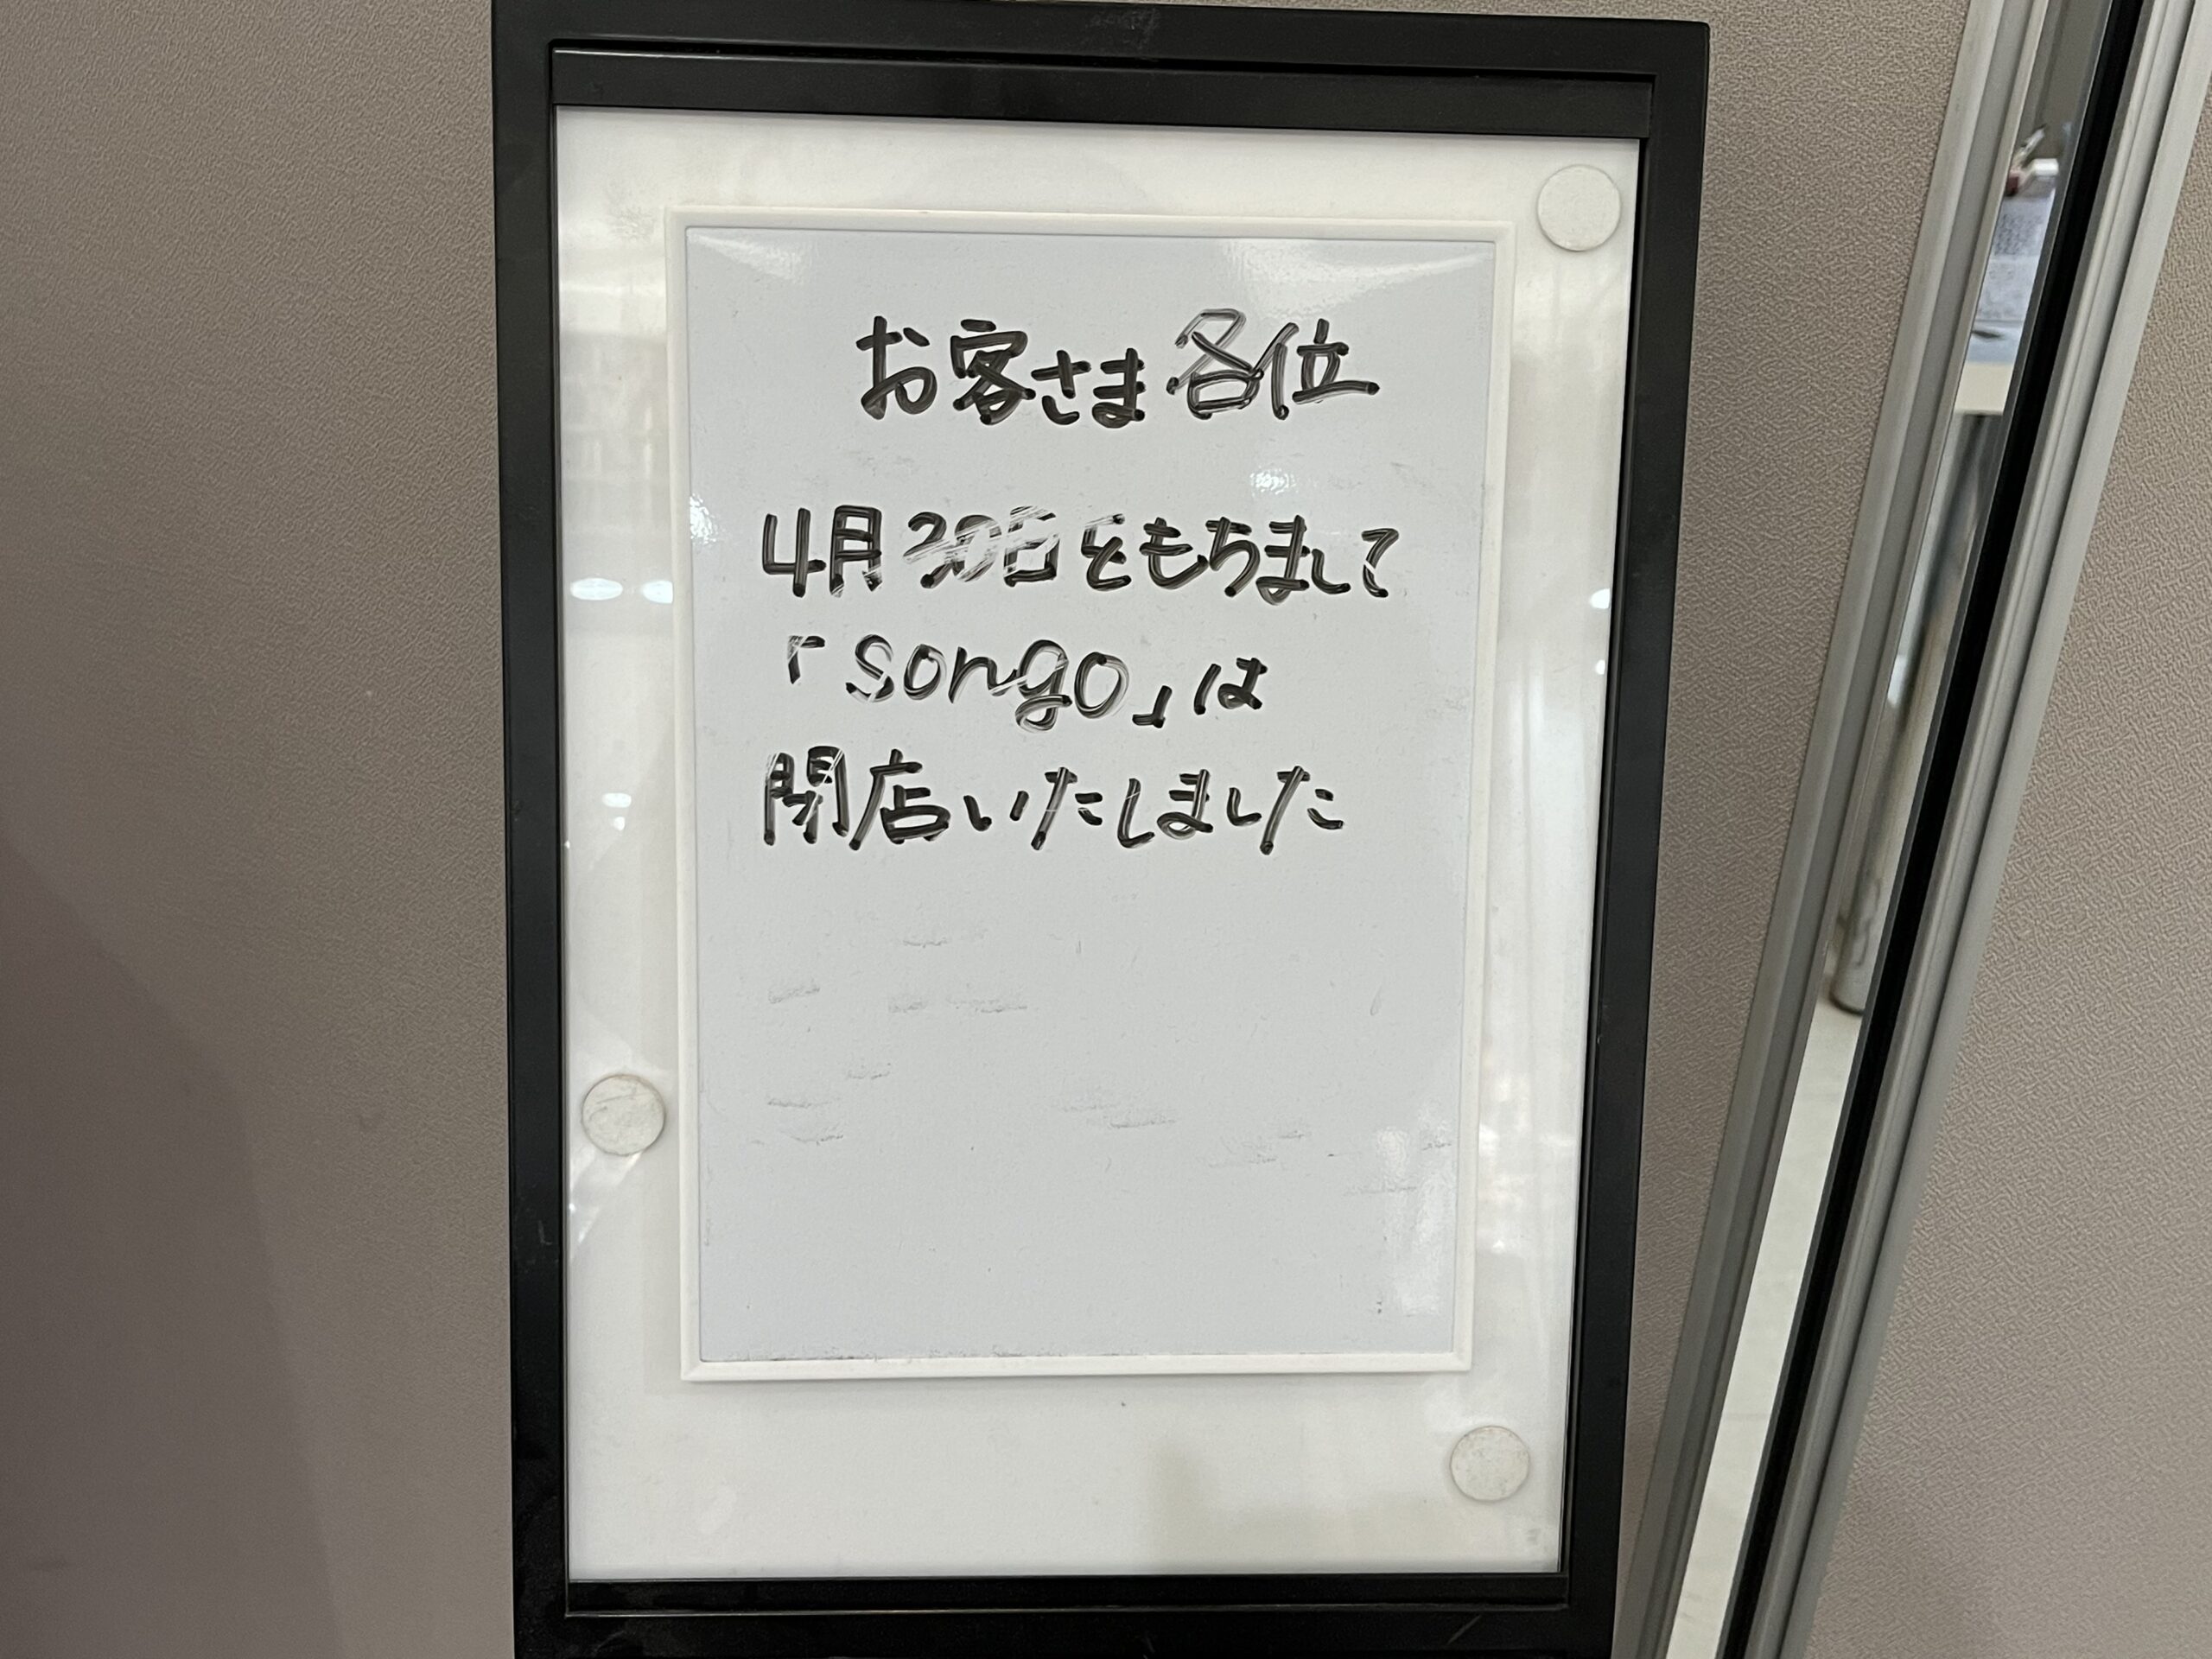 お客さま各位
4月30日をもちまして
「songo」は
閉店いたしました